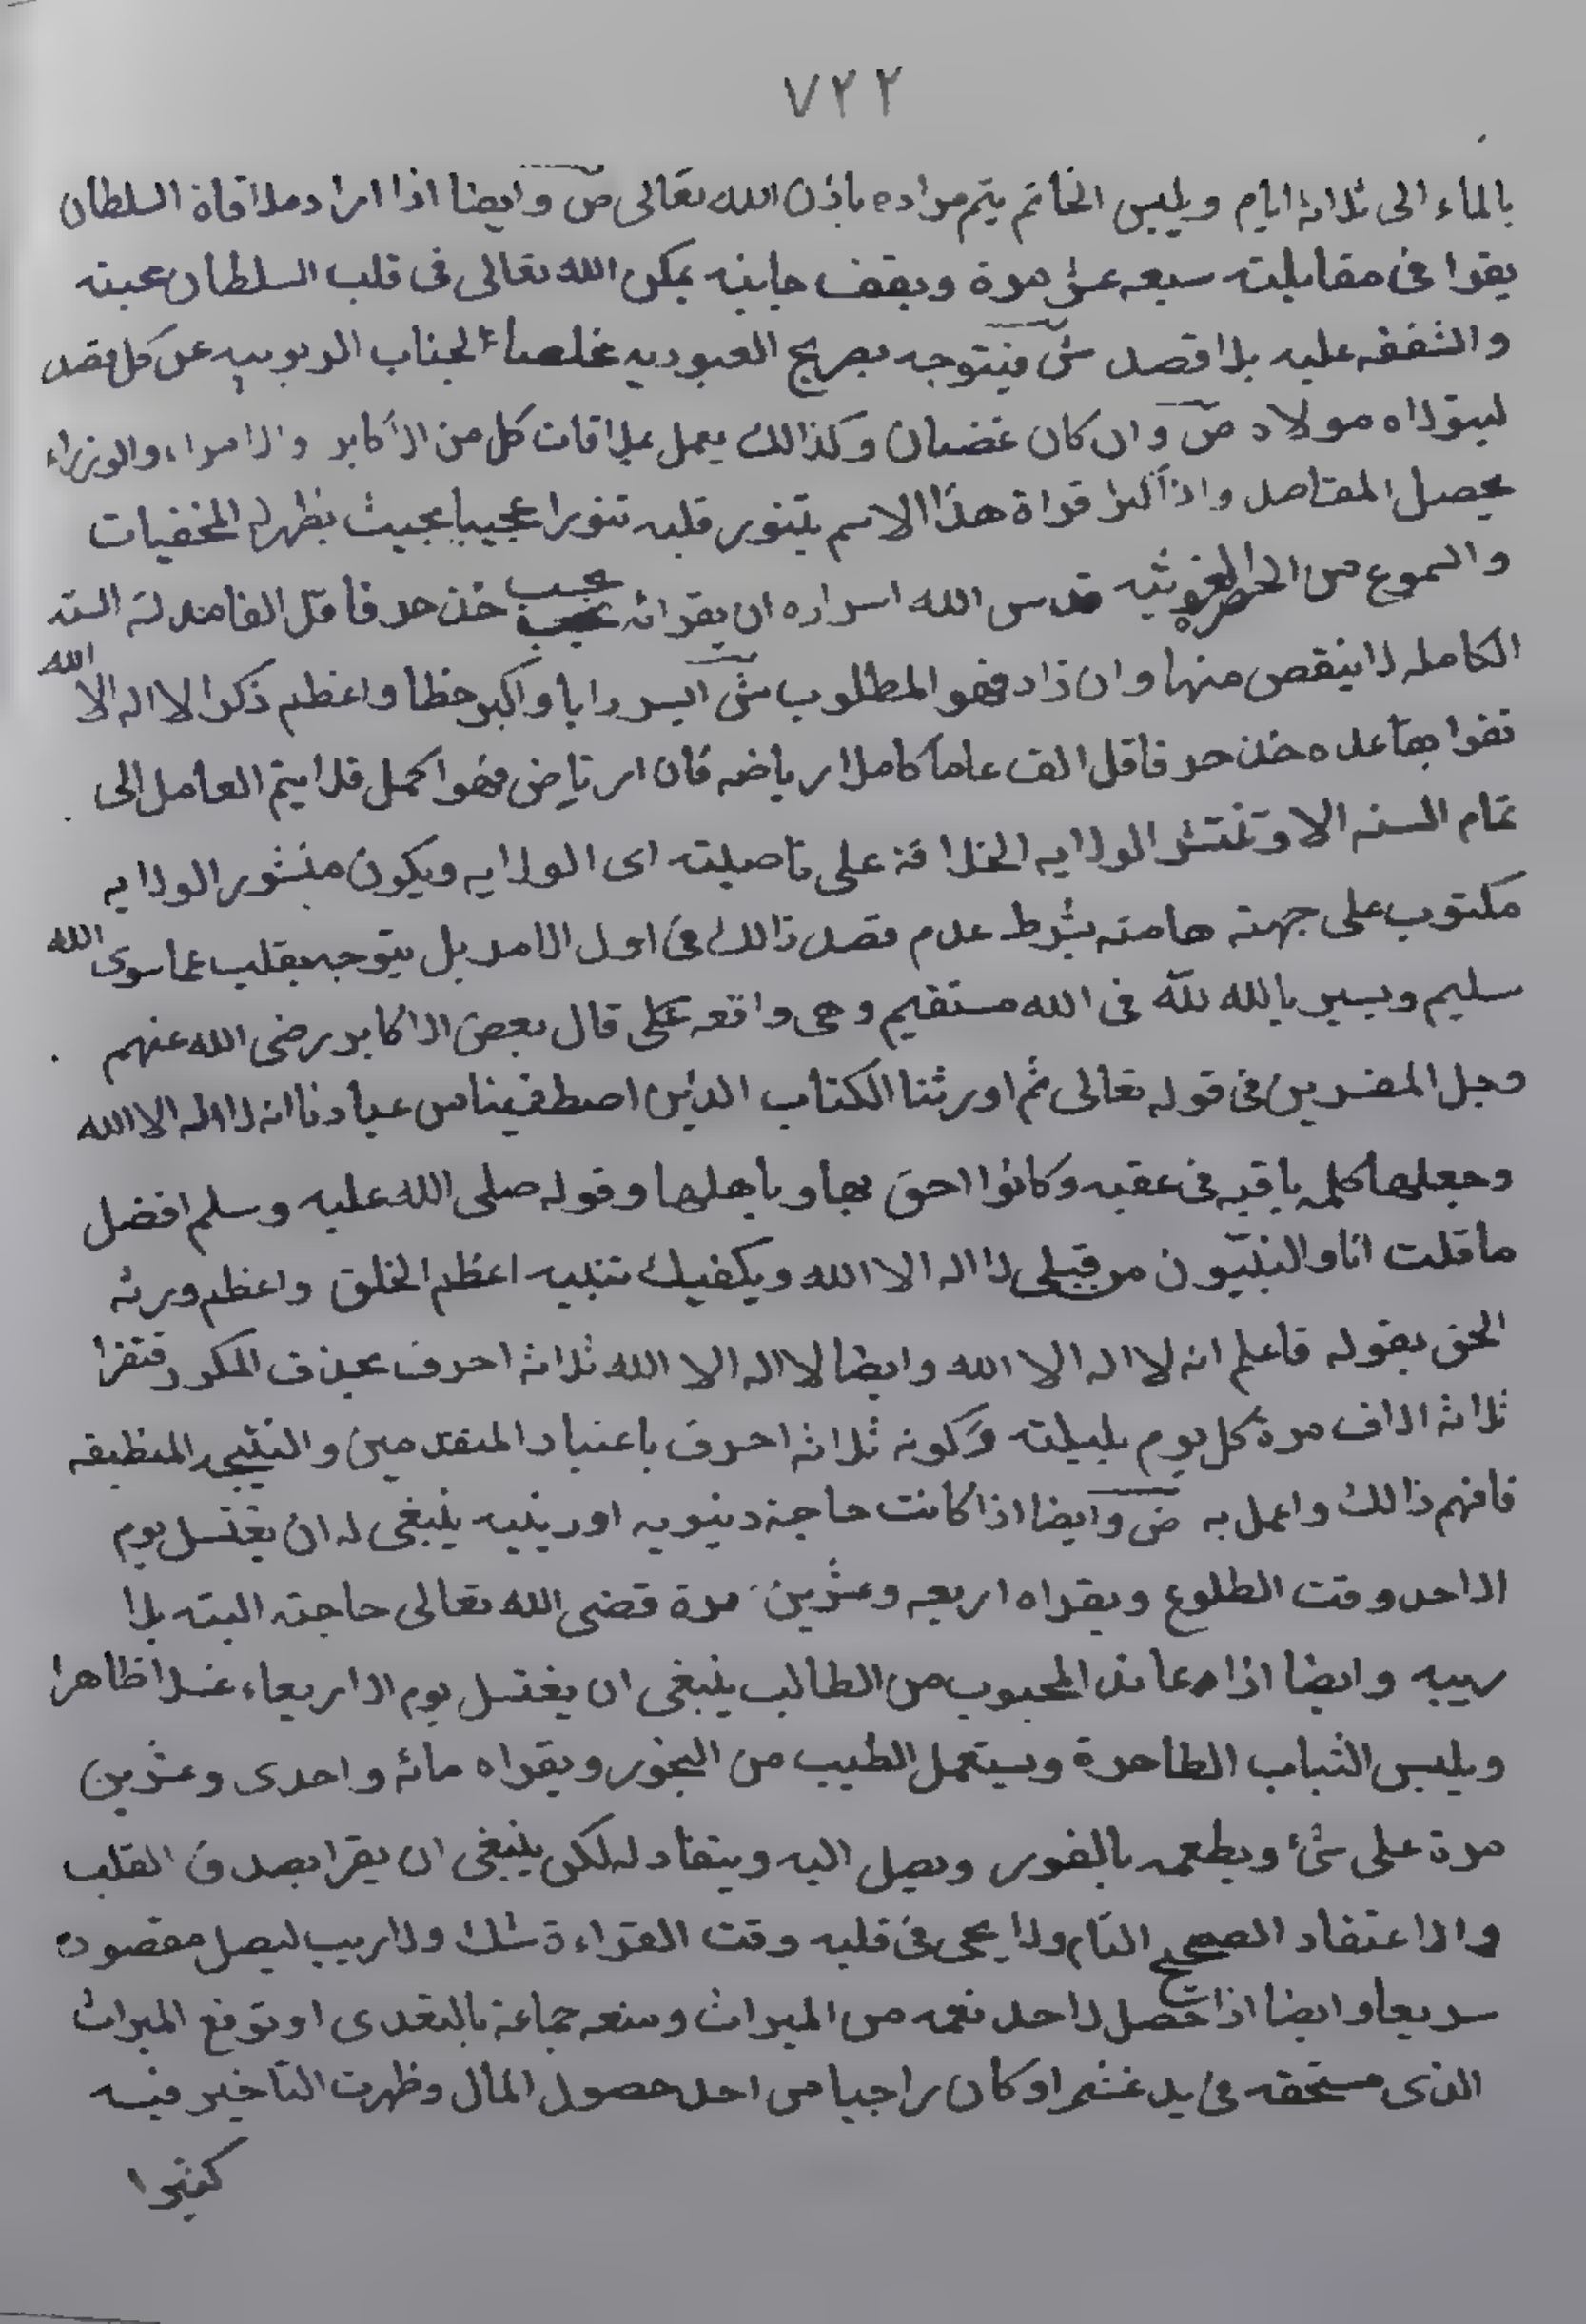 ٧٢٢
بالماء الى ثلاثة ايام ويلبس الخاتم يتم مراده باذن الله تعالى ص وايضا اذا اراد ملاقاة السلطان
يقرا فى مقابلته سبعه عشر مرة ويقف جانبه يمكن الله تعالى فى قلب السلطان محبته
والشفقه عليه بلا قصد شى فيتوجه بصريح العبوديه مخلصا لجناب الربوبيه عن كل قصد
ليتولاه مولاه ص وان كان غضبان وكذالك يعمل بملاقات كل من الاكابر والامراء والوزراء
يحصل المقاصد واذا اكثر قراة هذا الاسم يتنور قلبه تنورا عجيبا بحيث يظهر له المخفيات
والسموع من الحضره الغوثيه قدس الله اسراره ان يقرائه عجب خذ حد فاقل الفا مدلة السنه
الكامله لا ينقص منها وان زاد فهو المطلوب شى ايسر وابا واكبر حظا واعظم ذكرا لا اله الا الله
تقرا بها عده خذ حد فاقل الف عاما كاملا رياضه فان ارتاض فهو اكمل فلا يتم العامل الى
تمام السنه الا وتنتشر الولايه الخلاقة على ناصيته اى الولايه ويكون منشور الولايه
مكتوب على جهته هامته بشرط عدم قصد ذالك فى اول الامر بل يتوجه بقلب عما سوى الله
سليم ويسير بالله لله فى الله مستقيم وهى واقعه على قال بعض الاكابر رضى الله عنهم
وجل المفسرين فى قوله تعالى ثم اورثنا الكتاب الذين اصطفينا من عبادنا انه لا اله الا الله
وجعلها كلمه باقيه فى عقبه وكانوا احق بها وباهلها وقوله صلى الله عليه وسلم افضل
ما قلت انا والنبيون من قبلى لا اله الا الله ويكفيك تنبيه اعظم الخلق واعظم ورثه
الحق بقوله فاعلم انه لا اله الا الله وايضا لا اله الا الله ثلاثة احرف بحذف المكرر فتقرا
ثلاثة الاف مرة كل يوم بليلته وكونه ثلاثة احرف باعتبار المتقدمين والنتيجه المنطيقه
فافهم ذالك واعمل به ض وايضا اذا كانت حاجة دينويه اوردينيه ينبغى له ان يغتسل يوم
الاحد وقت الطلوع ويقراه اربعه وعشرين مرة قضى الله تعالى حاجته البته بلا
ريبه وايضا اذا عاند المحبوب من الطالب ينبغى ان يغتسل يوم الاربعاء غسلا ظاهرا
ويلبس الثياب الطاهرة ويستعمل الطيب من البخور ويقراه مائه واحدى وعشرين
مرة على شئ ويطعمه بالفور ويصل اليه وينقاد له لكن ينبغى ان يقرا بصدق القلب
والاعتقاد الصحيح التام ولا يحى فى قلبه وقت القراءة شك ولا ريب ليصل مقصوده
سريعا وايضا اذا حصل لاحد نعمه من الميراث ومنعه جماعة بالتعدى او توقع الميراث
الذى مستحقه فى يد غشم او كان راجيا من احد حصول المال وظهرت التاخير فيه
كثيرا